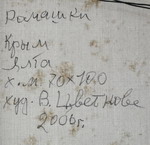 Ромашки
Крым
Ялта
х.м 70х100
худ. В. Цветкова
2006г.